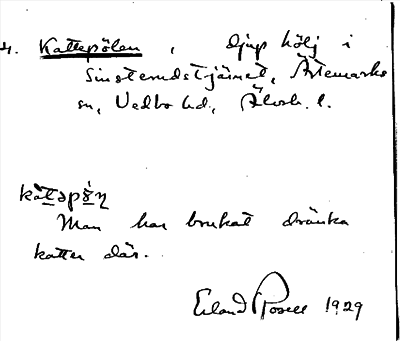 4. Kattepölen, djup hölj i
Sinsterudstjärnet, Ärtemarks
sn, Vedbo hd, Älvsb. l.
Man har brukat dränka
katter där.
Erland Rosell 1929